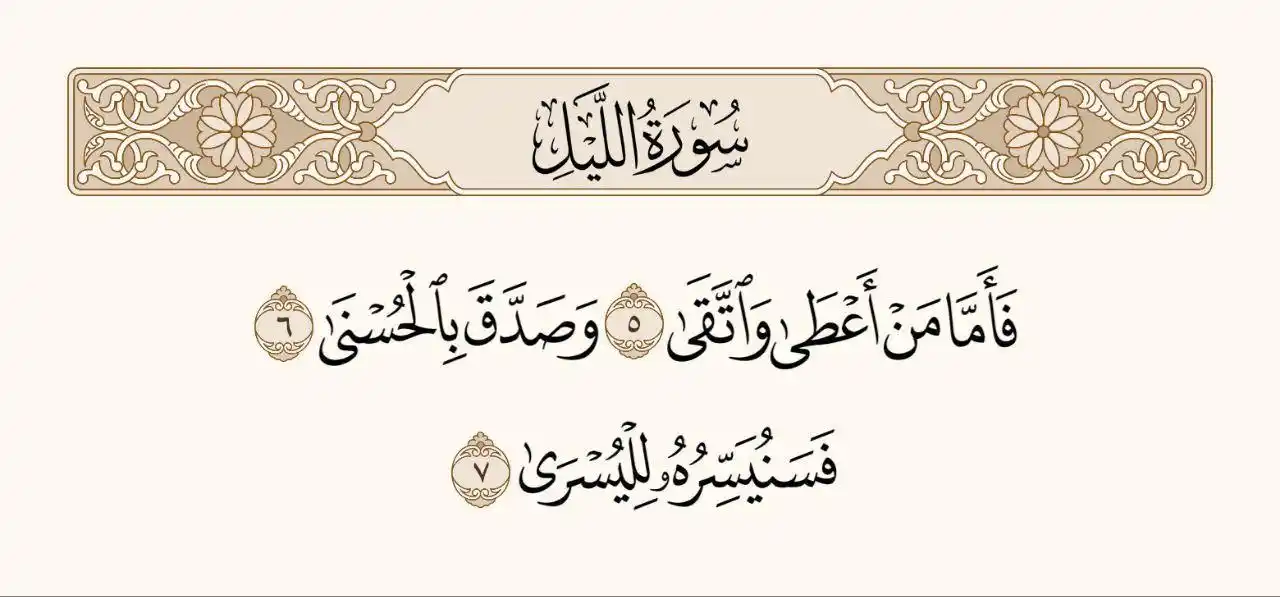 سُورَةُ اللَّيْلِ
فَأَمَّا مَنْ أَعْطَىٰ وَٱتَّقَىٰ ٥ وَصَدَّقَ بِٱلْحُسْنَىٰ ٦
فَسَنُيَسِّرُهُۥ لِلْيُسْرَىٰ ٧